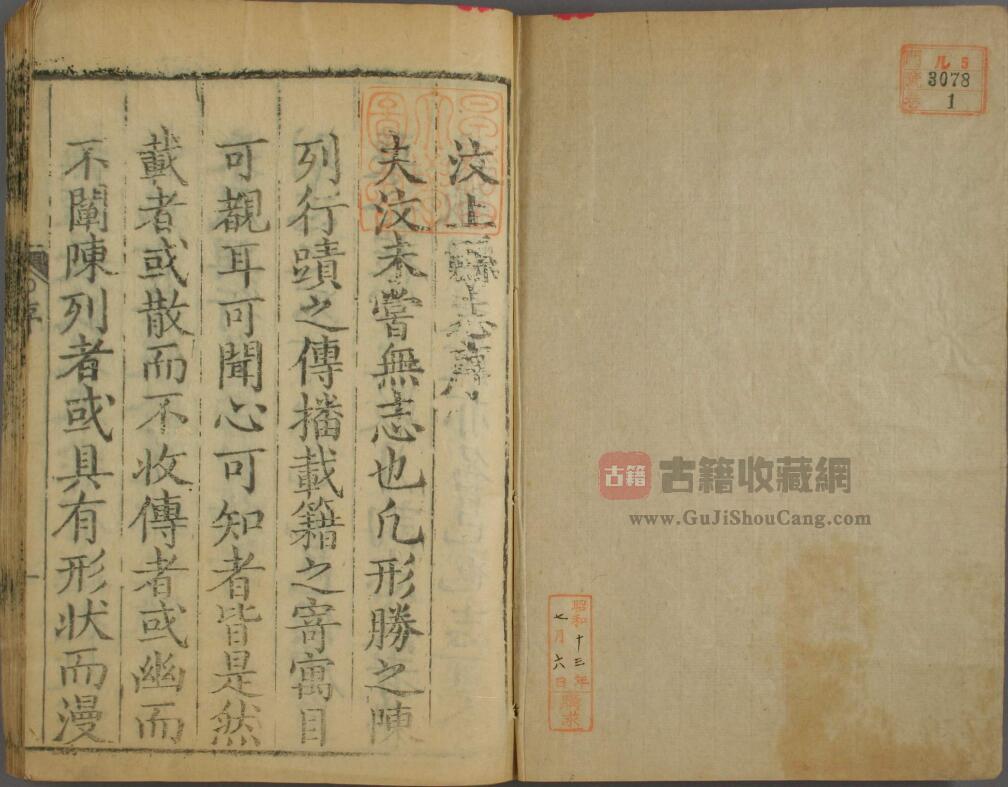 汶上縣志序
夫汶未嘗無志也凢形勝之陳
列行蹟之傳播載籍之寄寓目
可覩耳可聞心可知者皆是然
載者或散而不收傳者或幽而
不闡陳列者或具有形狀而漫
序
ル5
3078
1
古籍
古籍收藏網
www.GuJiShouCang.com
昭和十三年
七月六日
購求